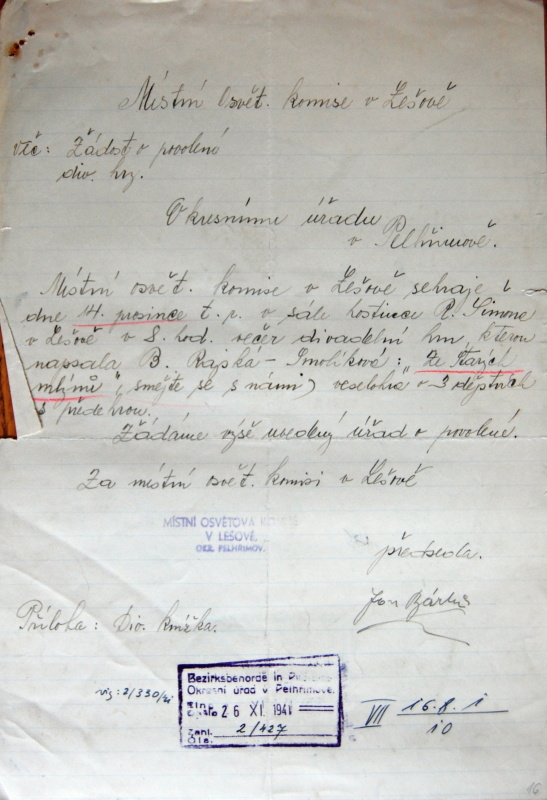 Místní Osvět. komise v Lešově
Věc: Žádost o povolení
div. hry.
Okresnímu úřadu
v Pelhřimově.
Místní osvět. komise v Lešově sehraje
dne 14. prosince t. r. v sále hostince R. Šimone
v Lešově v 8. hod. večer divadelní hru, kterou
napsala B. Rajská - Smolíková: "Ze starých
mlýnů", smějte se s námi) veselohra o 3 dějstvích
s předehrou.
Žádáme výše uvedený úřad o povolené.
Za místní osvět. komisi v Lešově
MÍSTNÍ OSVĚTOVÁ
V LEŠOVĚ,
OKR. PELHŘIMOV.
předseda.
Jan Bárta
Příloha: Div. knížka.
viz: 2/330/41
Bezirksbehörde in
Okresní úřad v Pelhřimově.
Eing.
Došlo 26 XI. 1941
Zahl.
Čís. 2/427
VII 16.8.1
10
16